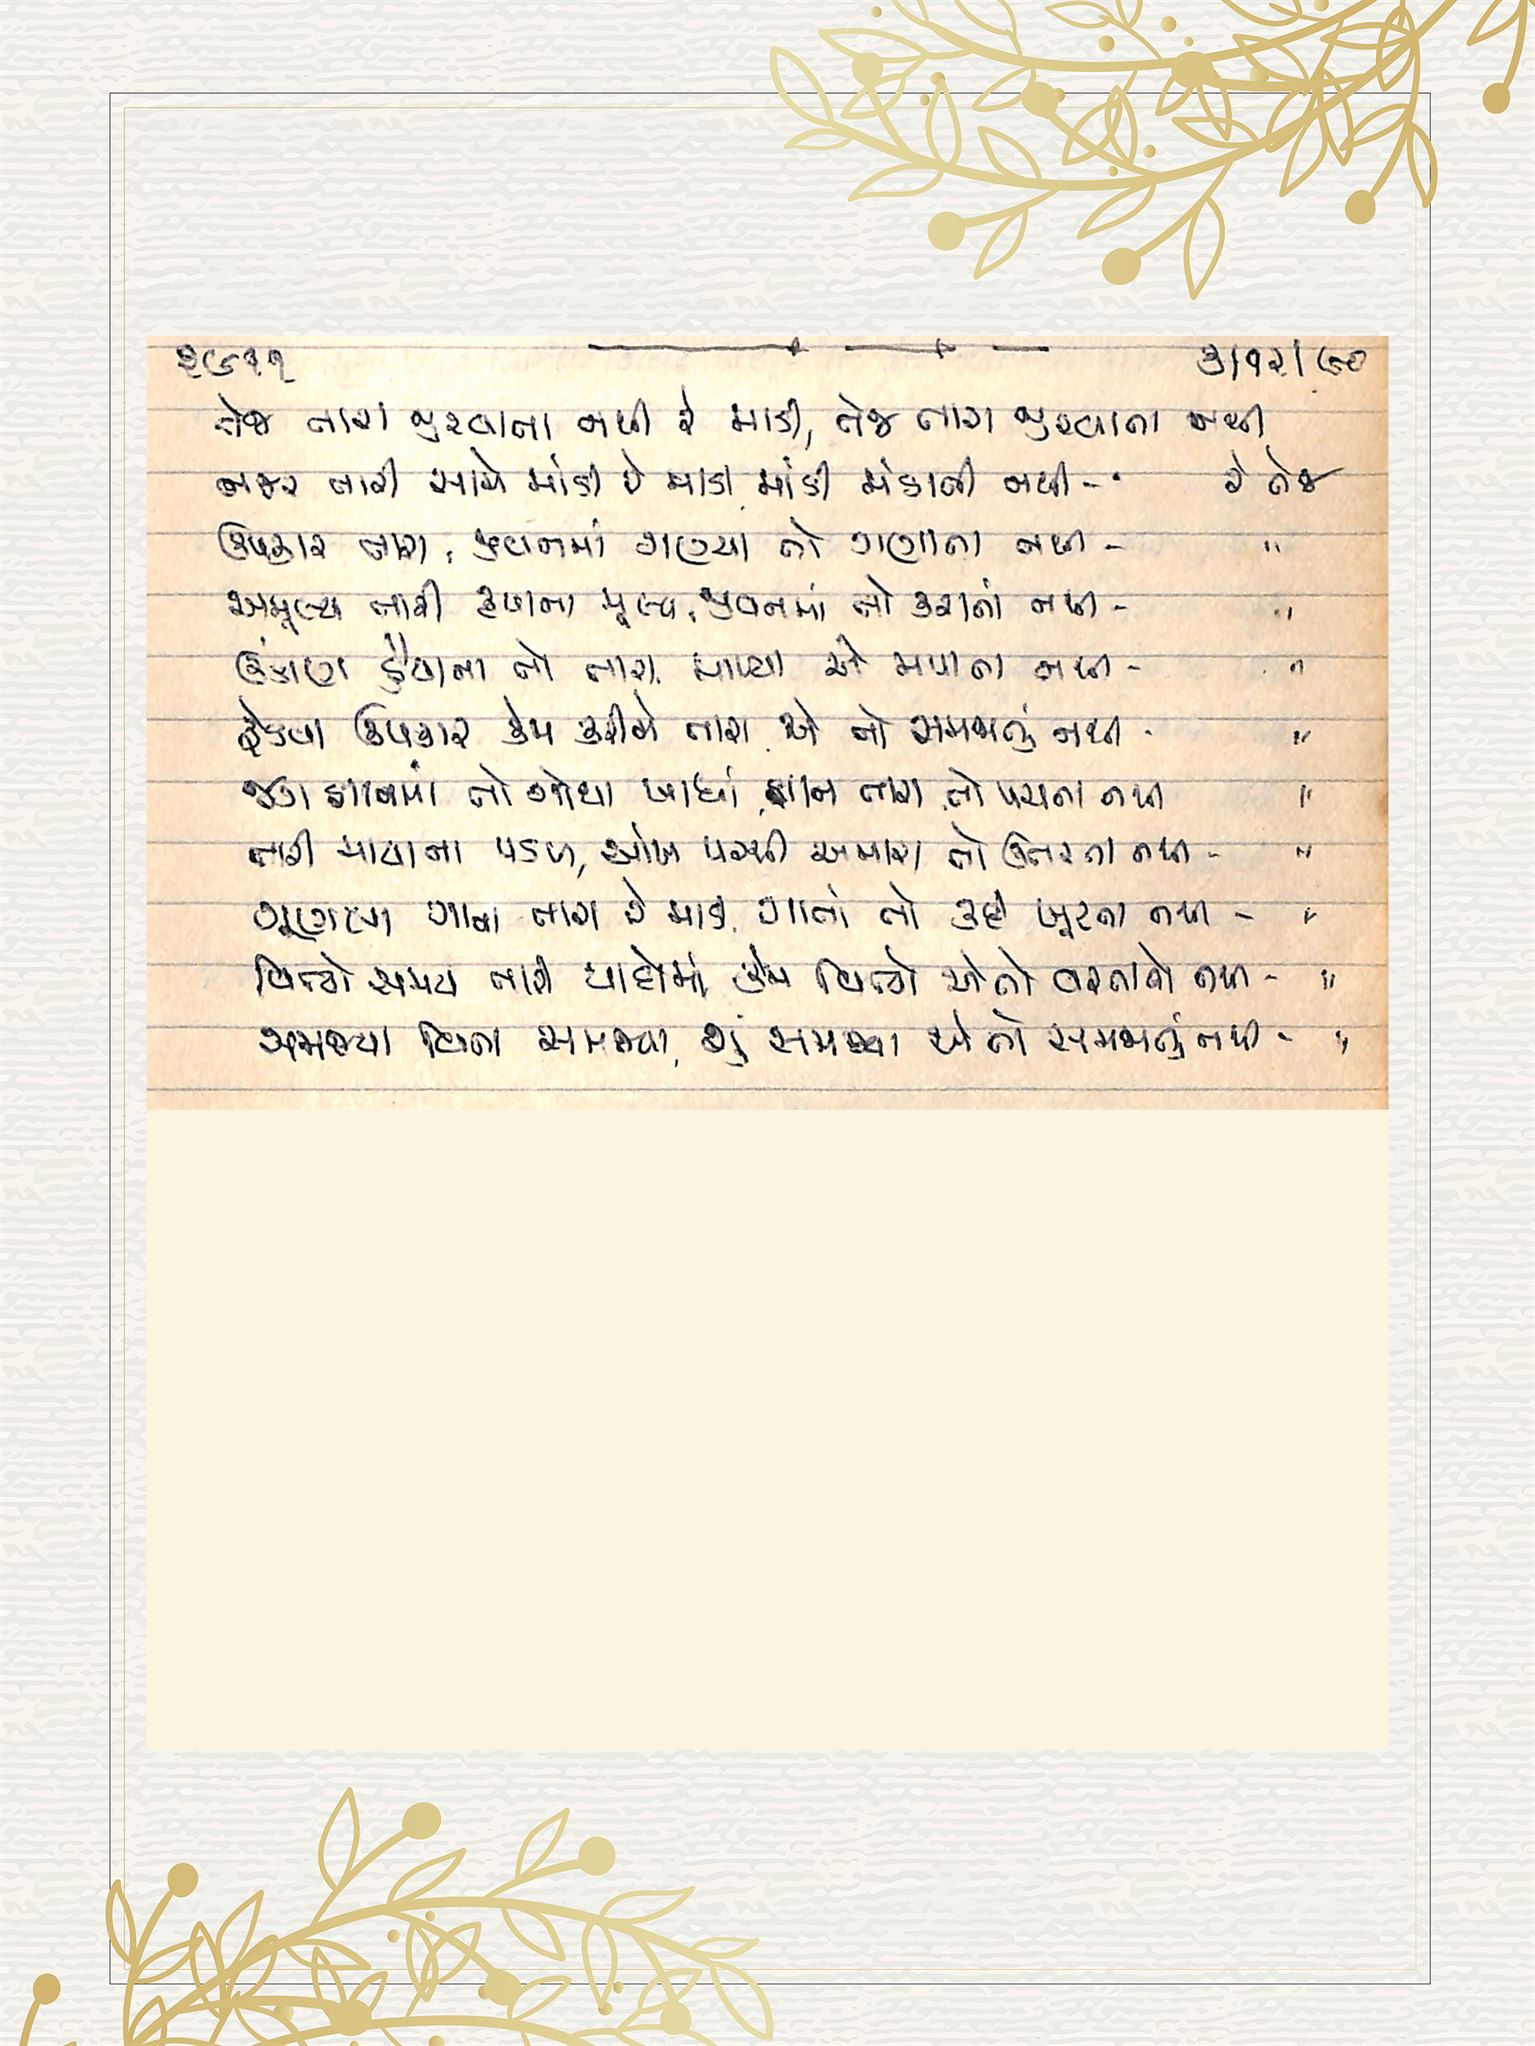 ૨૯૨૧ ૩/૧૨/૯૦
તેજ તારા જીરવાતા નથી રે માડી, તેજ તારા જીરવાતા નથી
નજર તારી સામે માંડી રે માડી માંડી મંડાતી નથી - રે તેજ
ઉપકાર તારા, જીવનમાં ગણ્યા તો ગણાતા નથી - "
અમૂલ્ય તારી કૃપાના મૂલ્ય, જીવનમાં તો કરાતાં નથી - "
ઊંડાણ હૈયાના તો તારા માપ્યા એ મપાતા નથી - "
ફેડવા ઉપકાર કેમ કરીને તારા એ તો સમજાતું નથી - "
જગ જ્ઞાનમાં તો ગોથા ખાધાં, જ્ઞાન તારા તો પચતા નથી "
તારી માયાના પડળ, આંખ પરથી અમારા તો ઉતરતા નથી - "
ગૂણલા ગાવા તારા રે માડી, ગાતાં તો કદી ખૂટતા નથી - "
વિત્યો સમય તારી યાદોમાં, કેમ વિત્યો એ તો વરતાતો નથી - "
સમજ્યા વિના સમજ્યા, શું સમજ્યા એ તો સમજાતું નથી - "